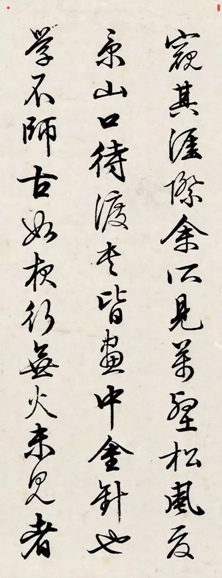 窺其涯際余所見萬壑松風夏
景山口待渡卷皆畫中金針也
學不師古如夜行無火未見者